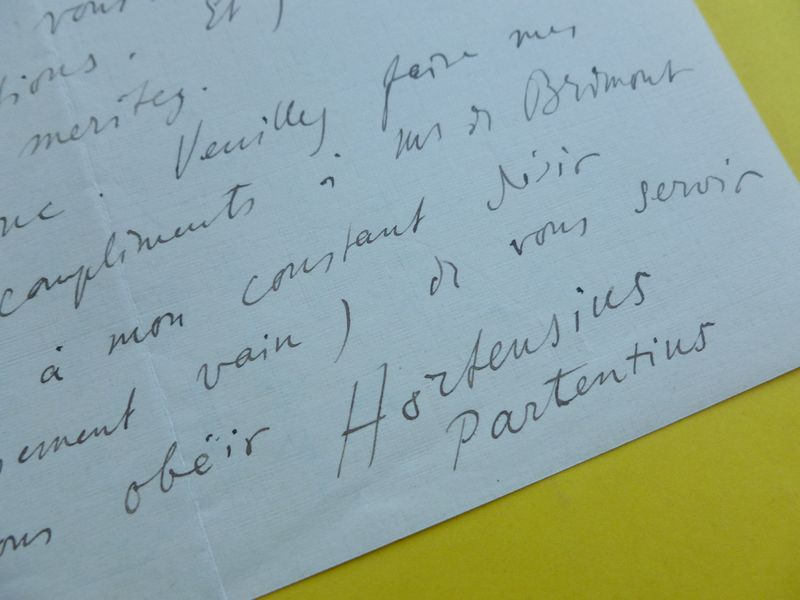 vous
tions. Et
meritez.
nc. Veuillez faire mes
compliments à Mr de Brimont
à mon constant désir
sement vain) de vous servir
ous obëir Hortensius
Partentius